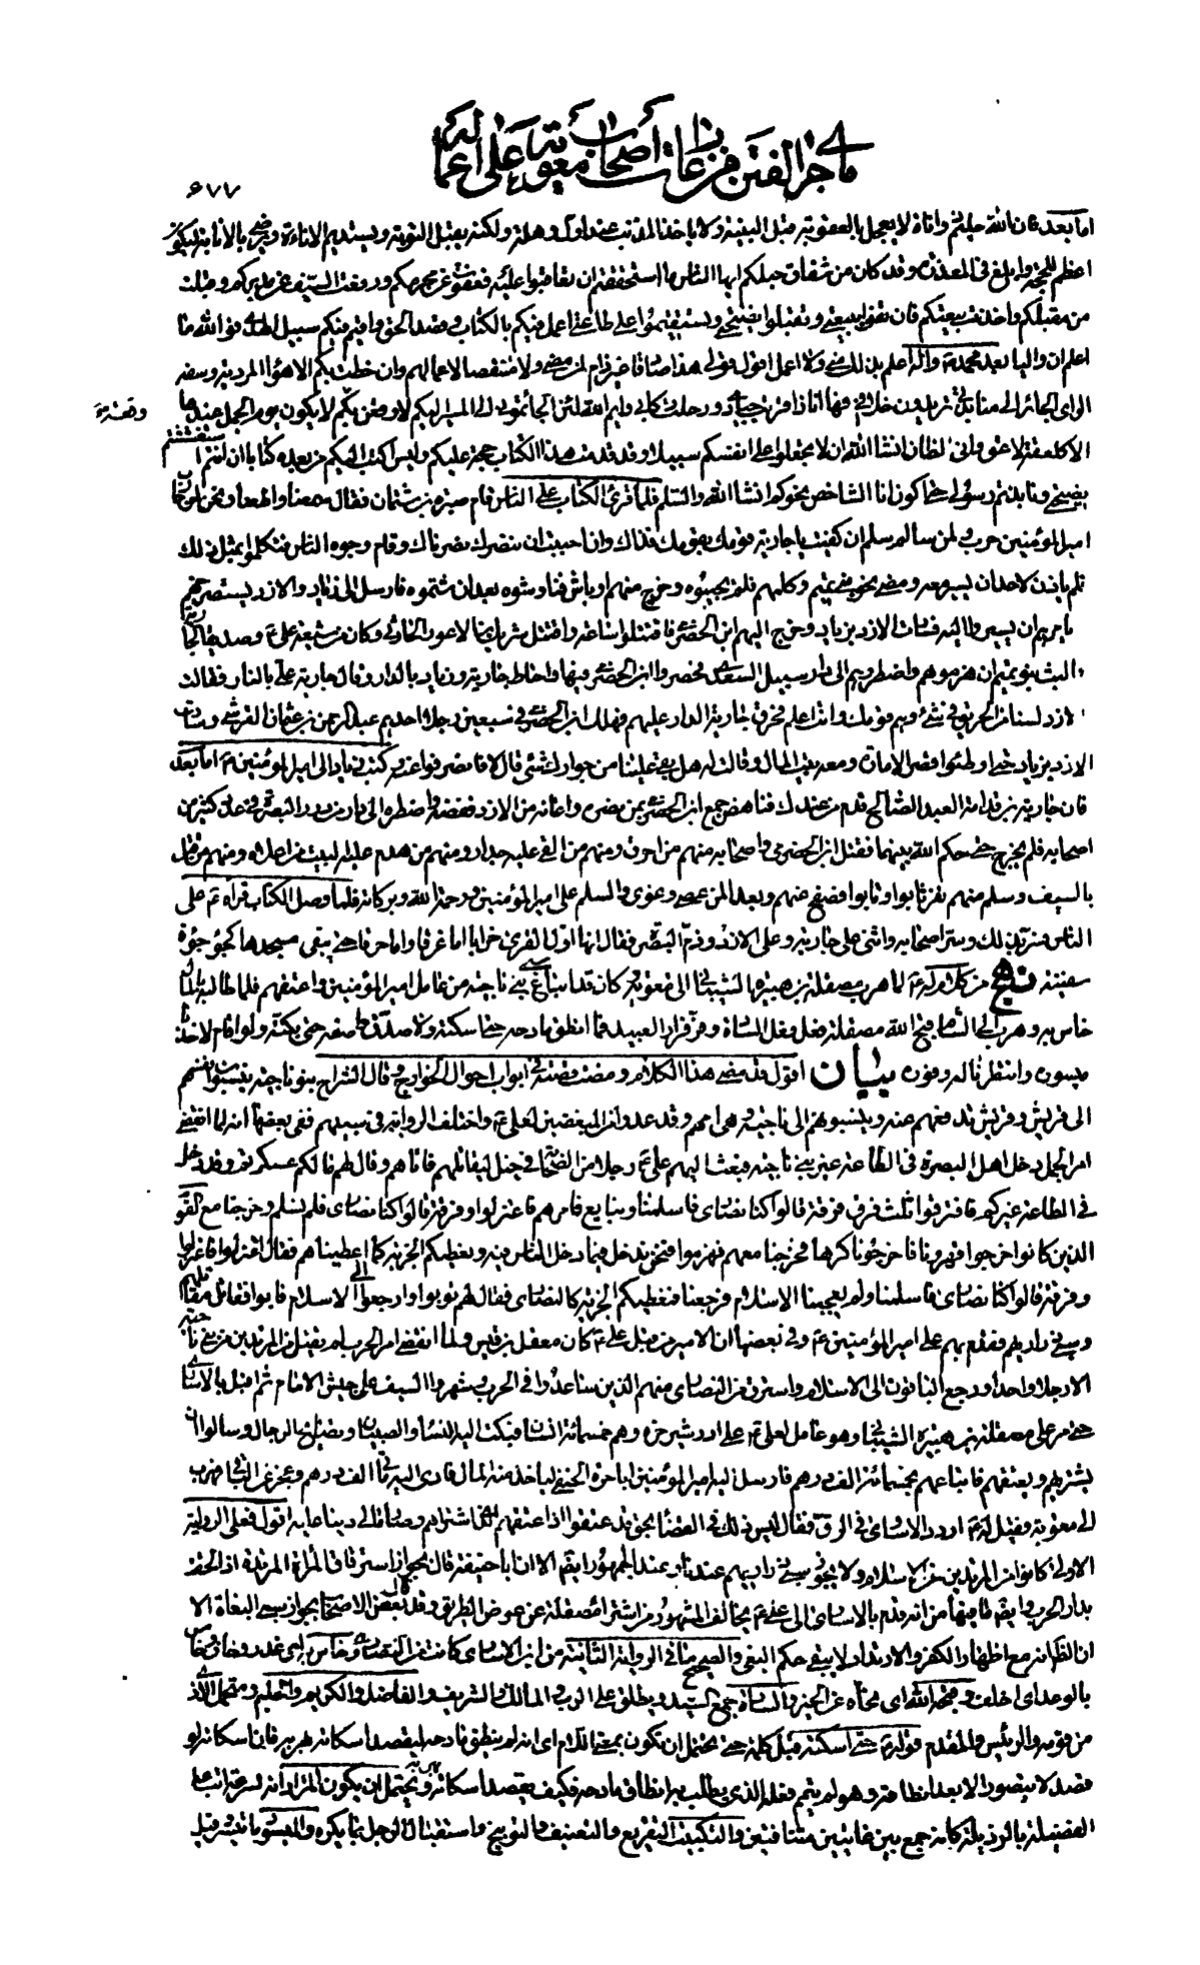 ما جرى من الفتن من غارات أصحاب معوية على أعماله
٦٧٧
اما بعد فان الله حليم ذو اناة لا يعجل بالعقوبة قبل البينة ولا ياخذ المذنب عند اول وهلة ولكنه يقبل التوبة ويستديم الاناة ويرضى بالانابة ليكون
اعظم للحجة وابلغ فى المعذرة وقد كان من شقاق جلكم ايها الناس ما استحققتم ان تعاقبوا عليه فعفوت عن مجرمكم ورفعت السيف عن مدبركم وقبلت
من مقبلكم واخذت بيعتكم فان تفوا ببيعتى وتقبلوا نصيحتى وتستقيموا على طاعتى اعمل فيكم بالكتاب وقصد الحق واقم فيكم سبيل الهدى فوالله ما
اعلم ان واليا بعد محمد ص واله اعلم بذلك منى ولا اعمل اقول قولى هذا صادقا غير ذام لمن مضى ولا منتقصا لاعمالهم وان خطت بكم الاهوا المردية وسفه
الراى الجائر الى منابذتى تريدون خلافى فها انا ذا قربت جيادى ورحلت ركابى وايم الله لئن الجاتمونى الى المسير اليكم لاوقعن بكم وقعة لا يكون يوم الجمل عندها
الا كلعقة لاعق وانى لظان انشا الله ان لا تجعلوا على انفسكم سبيلا وقد قدمت هذا الكتاب حجة عليكم وليس اكتب اليكم من بعده كتابا ان انتم استغششتم
نصيحتى ونابذتم رسولى حتى اكون انا الشاخص نحوكم انشا الله والسلم فلما قرئ الكتاب على الناس قام صبرة بن شيمان فقال سمعنا واطعنا ونحن لمن حارب
امير المؤمنين حرب ولمن سالم سلم ان كفيت يا جارية قومك بقومك فذاك وان احببت ان ننصرك نصرناك وقام وجوه الناس فتكلموا بمثل ذلك
فلم ياذن لاحد ان يسير معه ومضى نحو بنى تميم وكلمهم فلم يجيبوه وخرج منهم اوباش فناوشوه بعد ان شتموه فارسل الى زياد والازد يستصرخهم
يامرهم ان يسيروا اليه فسارت الازد بزياد وخرج اليهم ابن الحضرمى فاقتتلوا ساعة واقتتل شريك بن الاعور الحارثى وكان من شيعة على ع وصديقا لجارية
البث بنو تميم ان هزموهم واضطروهم الى دار سبيل السعدى فحصروا ابن الحضرمى فيها واحاط جارية وزياد بالدار وقال جارية على بالنار فقالت
الازد لسنا من الحريق فى شئ وهم قومك وانت اعلم فحرق جارية الدار عليهم فهلك ابن الحضرمى فى سبعين رجلا احدهم عبد الرحمن بن عثمان القرشى وسارت
الازد بزياد حتى اوطئوا قصر الامارة ومعه بيت المال وقالت له هل بقى علينا من جوارك شئ قال لا فانصرفوا عنه وكتب زياد الى امير المؤمنين ع اما بعد
فان جارية بن قدامة العبد الصالح قدم من عندك فناهض جمع ابن الحضرمى بمن نصره واعانه من الازد ففضه واضطره الى دار من دور البصرة فى عدد كثير من
اصحابه فلم يخرج حتى حكم الله بينهما فقتل ابن الحضرمى واصحابه منهم من احرق ومنهم من القى عليه جدار ومنهم من هدم عليه البيت من اعلاه ومنهم من قتل
بالسيف وسلم منهم نفر ثابوا وتابوا فصفح عنهم وبعدا لمن عصى وغوى والسلم على امير المؤمنين ورحمة الله وبركاته فلما وصل الكتاب قراه ع على
الناس فسر بذلك وسر اصحابه واثنى على جارية وعلى الازد وذم البصرة فقال انها اول القرى خرابا اما غرقا واما حرقا حتى يبقى مسجدها كجؤجؤة
سفينة نهج من كلام له ع لما هرب مصقلة بن هبيرة الشيبانى الى معوية وكان قد ابتاع سبى بنى ناجية من عامل امير المؤمنين واعتقهم فلما طالبه بالمال
خاس به وهرب الى الشام قبح الله مصقلة فعل فعل السادة وفر فرار العبيد فما انطق مادحه حتى اسكته ولا صدق واصفه حتى بكته ولو اقام لاخذنا
ميسوره وانتظرنا بماله وفوره بيان اقول قد مضى هذا الكلام ومضت قصته فى ابواب احوال الخوارج وقال الشراح بنو ناجية ينسبون انفسهم
الى قريش وقريش تدفعهم عنه وينسبونهم الى ناجية وهى امهم وقد عدوا من المبغضين لعلى ع واختلف الرواية فى سبيهم ففى بعضها انه لما انقضى
امر الجمل دخل اهل البصرة فى الطاعة غير بنى ناجية فبعث اليهم على ع رجلا من الصحابة فى خيل ليقاتلهم فاتاهم وقال لهم ما لكم عسكرتم وقد دخل
فى الطاعة غيركم فافترقوا ثلث فرق فرقة قالوا كنا نصارى فاسلمنا ونبايع فامرهم فاعتزلوا وفرقة قالوا كنا نصارى فلم نسلم وخرجنا مع القوم
الذين كانوا خرجوا قهرونا فاخرجونا كرها فخرجنا معهم فهزموا فنحن ندخل فيما دخل الناس فيه ونعطيكم الجزية كما اعطيناهم فقال اعتزلوا فاعتزلوا
وفرقة قالوا كنا نصارى فاسلمنا ولم يعجبنا الاسلام فرجعنا فنعطيكم الجزية كالنصارى فقال لهم توبوا وارجعوا الى الاسلام فابوا فقاتل مقاتلهم
وسبى ذراريهم فقدم بهم على امير المؤمنين ع وفى بعضها ان الامير من قبل على ع كان معقل بن قيس ولما انقضى امر الحرب لم يقتل من المرتدين من بنى ناجية
الا رجلا واحدا ورجع الباقون الى الاسلام واسترق من النصارى منهم الذين ساعدوا فى الحرب وشهروا السيف على جيش الامام ثم اقبل بالاسارى
حتى مر على مصقلة بن هبيرة الشيبانى وهو عامل لعلى ع على اردشير خره وهم خمسمائة انسان فبكت اليه النساء والصبيان وتصايح الرجال وسالوا ان
يشتريهم ويعتقهم فابتاعهم بخمسمائة الف درهم فارسل اليه امير المؤمنين ابا حرة الحنفى لياخذ منه المال فادى اليه مأتى الف درهم وعجز عن الباقى فهرب
الى معوية فقيل له ع اردد الاسارى فى الرق فقال ليس ذلك فى القضاء بحق قد عتقوا اذ اعتقهم الذى اشتراهم وصار مالى دينا عليه اقول فعلى الرواية
الاولى كانوا من المرتدين عن الاسلام ولا يجوز سبى ذراريهم عندنا وعند الجمهور ايضا الا ان ابا حنيفة قال بجواز استرقاق المرأة المرتدة اذا لحقت
بدار الحرب وايضا ما فيها من انه قدم بالاسارى الى على ع يخالف المشهور من اشتراء مصقلة عن عرض الطريق وقد قال بعض الاصحاب بجواز سبى البغاة الا
ان الظاهر انه مع اظهار الكفر والارتداد لا يبقى حكم البغى والصحيح ما فى الرواية الثانية من ان الاسارى كانت من النصارى وخاس به اى غدر وخان وخاس
بالوعد اى اخلف وقبحه الله اى نحاه عن الخير والسادة جمع السيد ويطلق على الرب والمالك والشريف والفاضل والكريم والحليم ومتحمل الاذى
من قومه والرئيس والمقدم قوله ع حتى اسكته قيل كلمة حتى يحتمل ان تكون بمعنى اللام اى انه لم ينطق مادحه ليقصد اسكاته بهربه فان اسكاته لو
قصد لا يتصور الا بعد انطاقه وهو لم يتم فعله الذى يطلب به انطاق مادحه فكيف يقصد اسكاته ويحتمل ان يكون المراد انه لسرعة اتباعه
الفضيلة بالرذيلة كانه جمع بين غايتين متنافيتين والتبكيت التقريع والتعنيف والتوبيخ واستقبال الرجل بما يكره والميسور ما تيسر وقيل